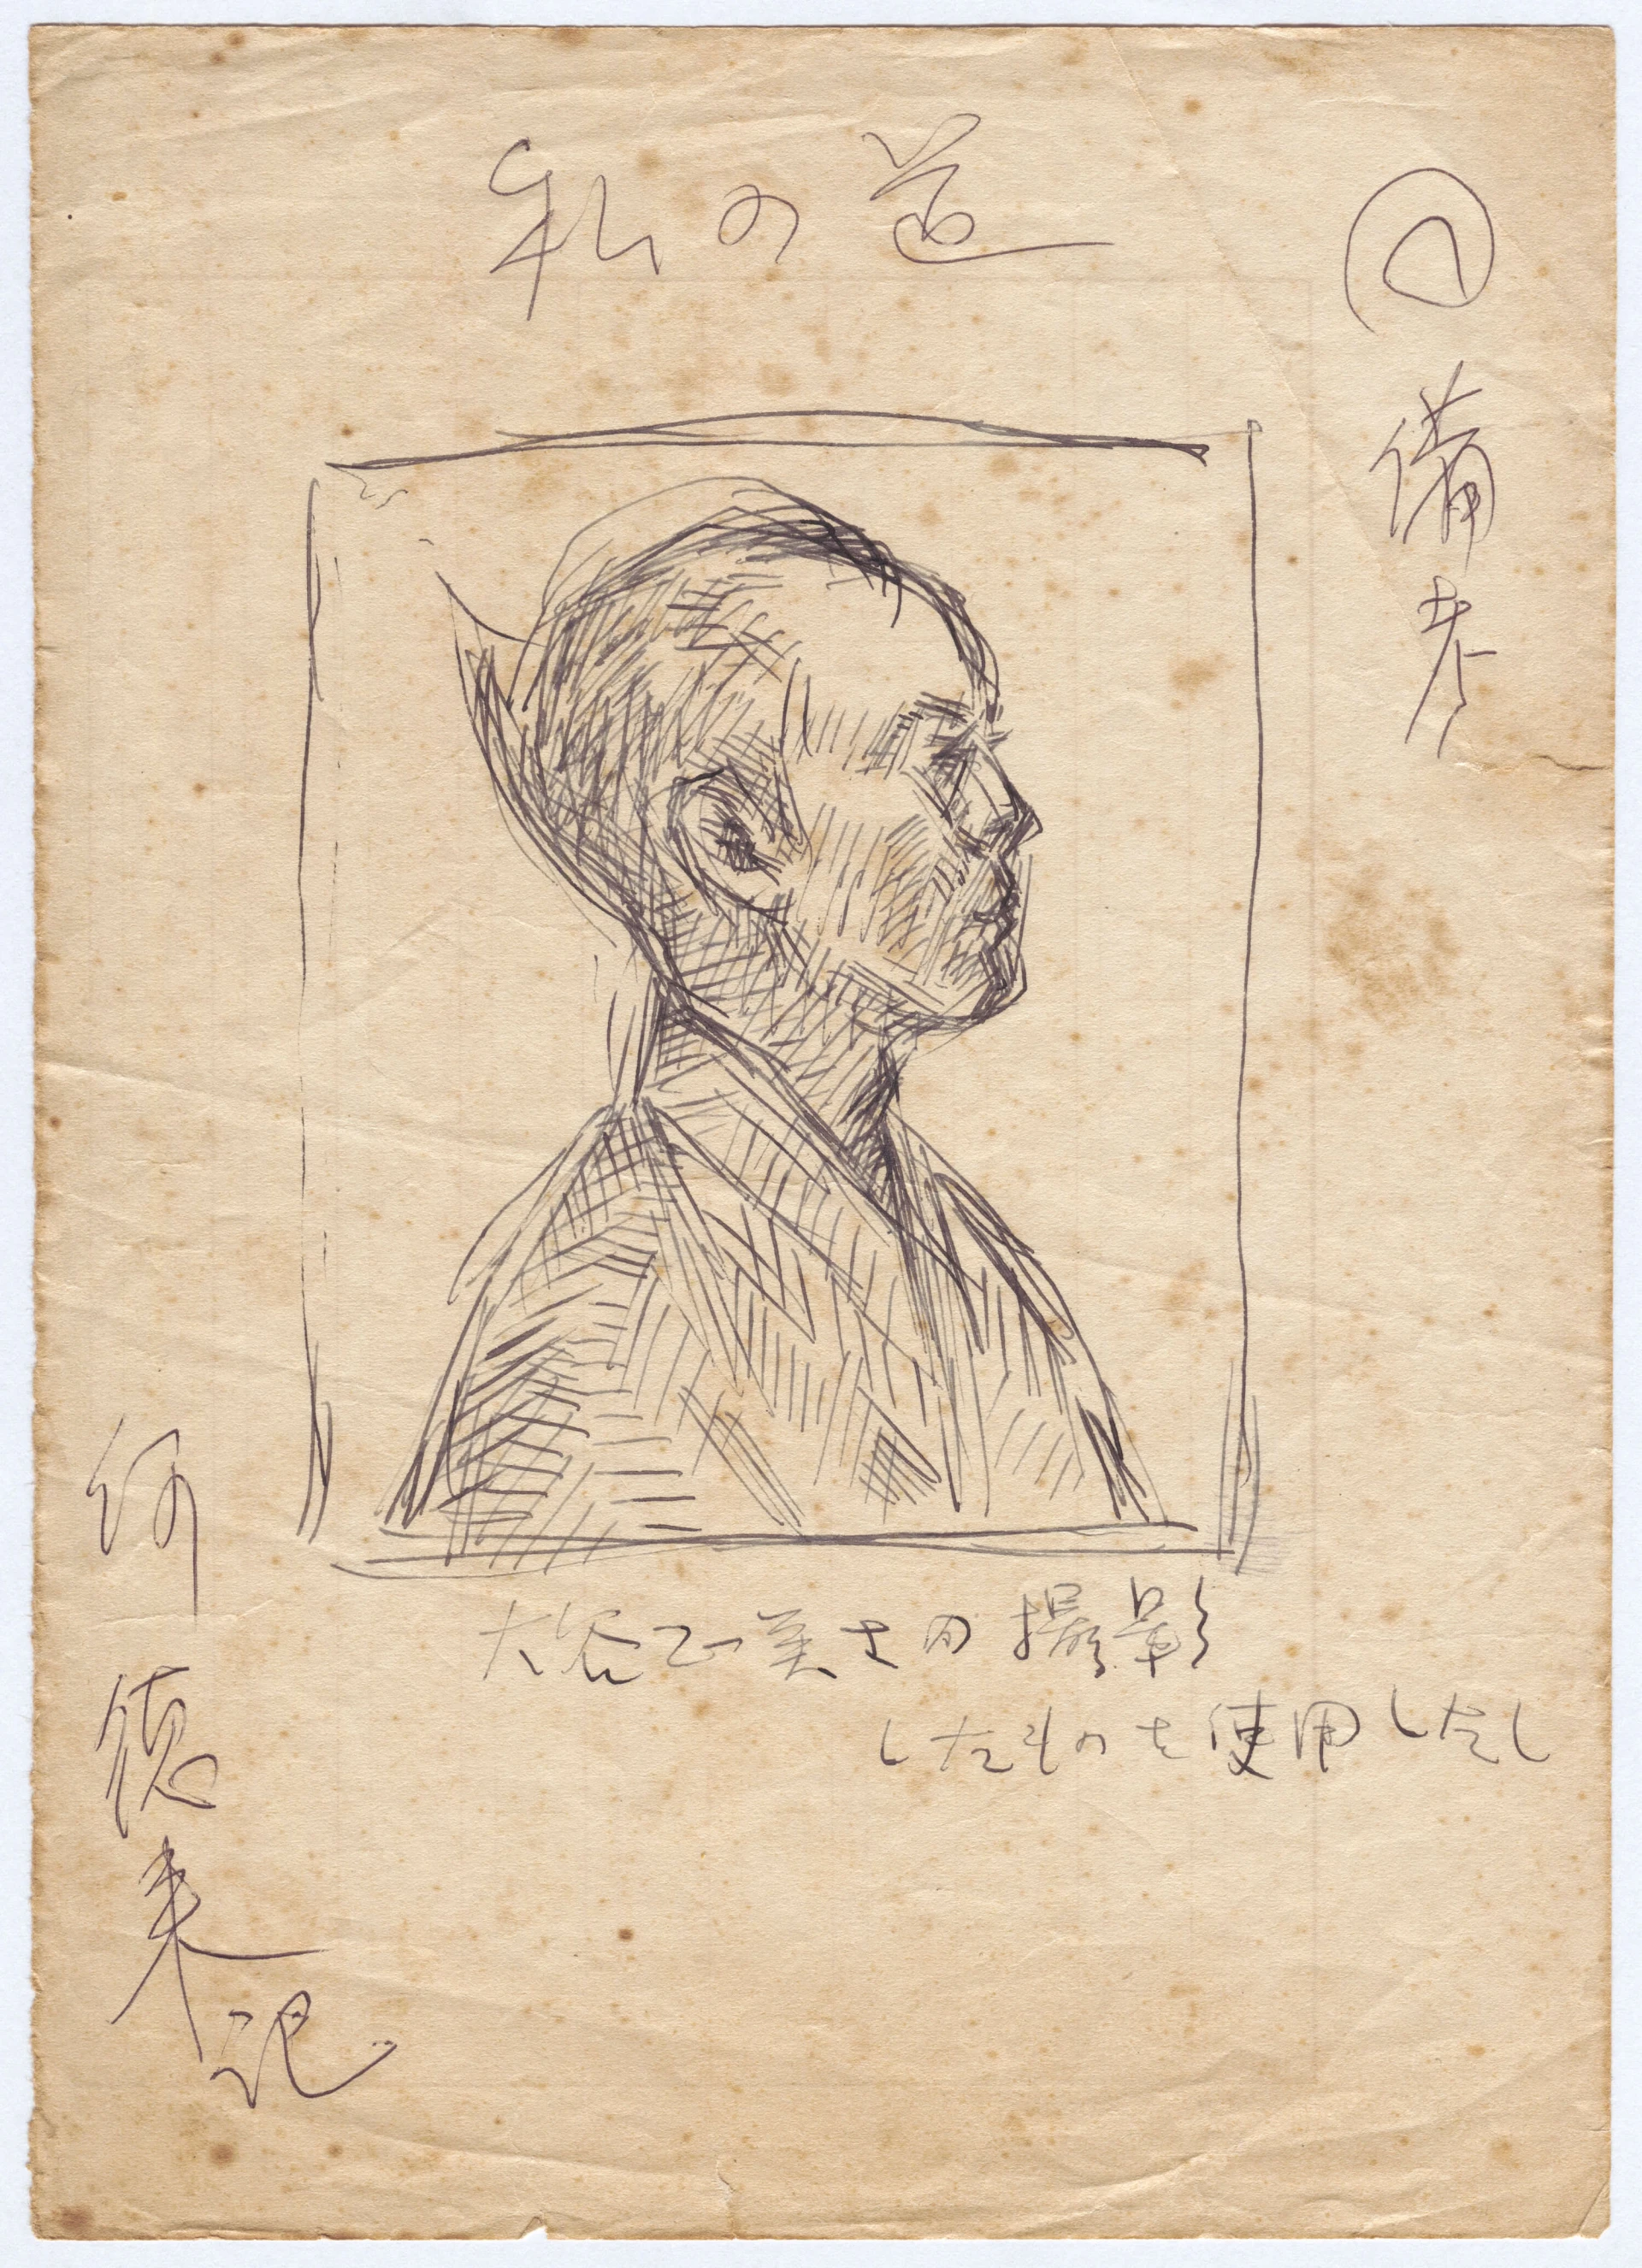 私の道
備考
大谷正美さの撮影
したものを使用したし
何
德
来
記